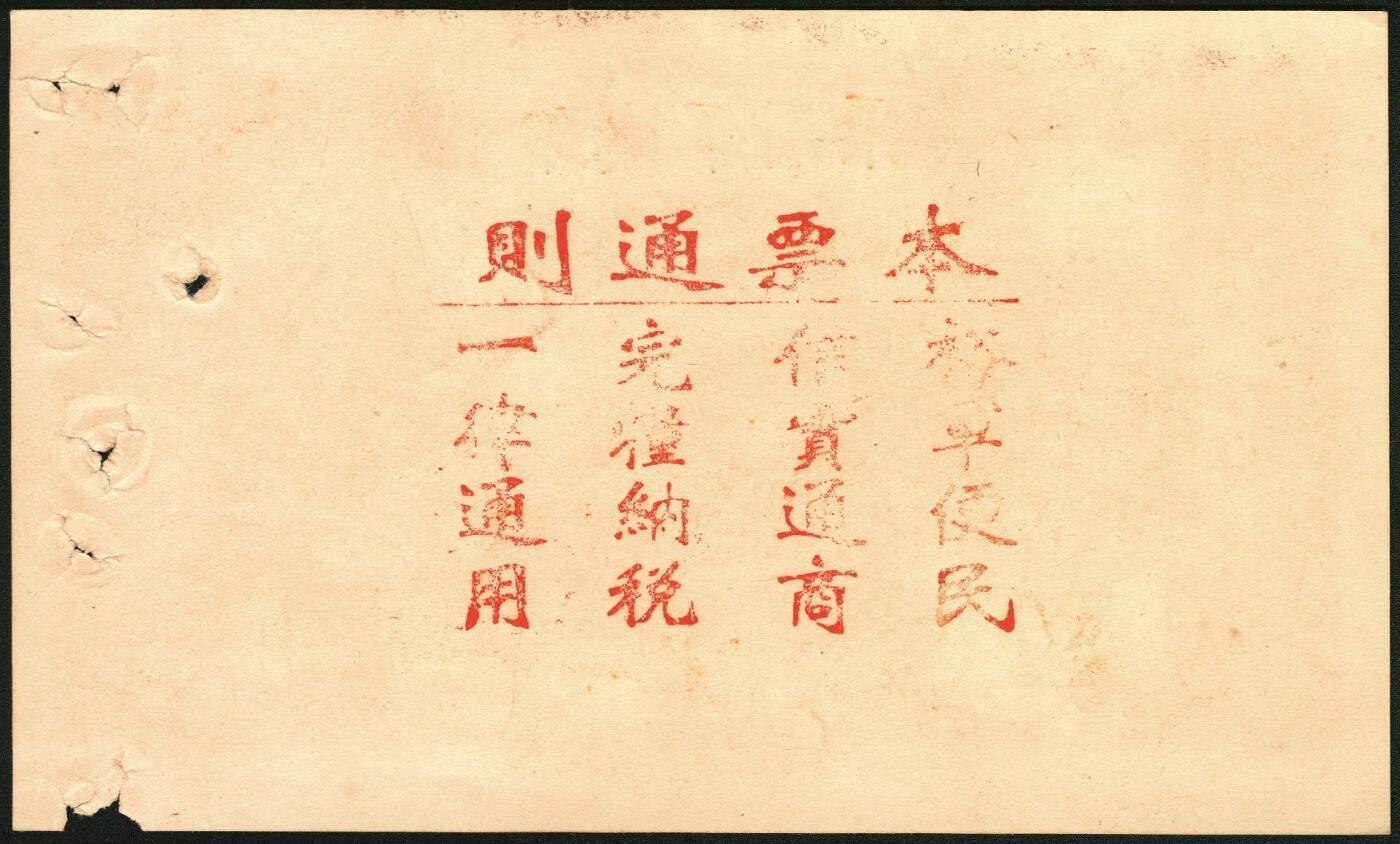 本票通則
裕軍便民
作實通商
完糧納税
一律通用